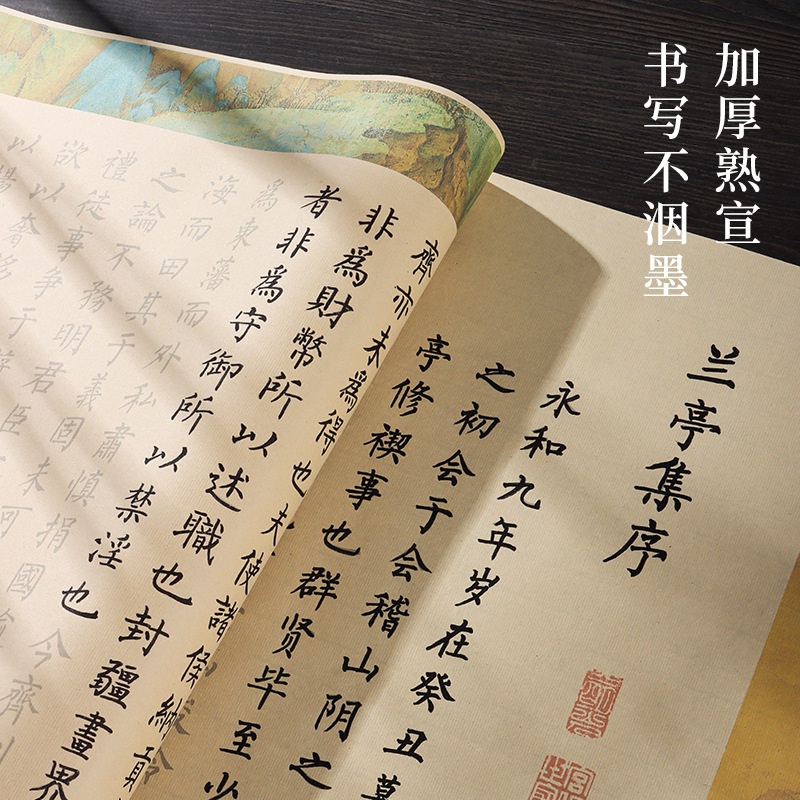 加厚熟宣
书写不洇墨
兰亭集序
永和九年岁在癸丑暮
之初会于会稽山阴之
亭修禊事也群贤毕至少
齊亦未為得也夫使諸侯納貢
非為財幣所以述職也封疆畫界
者非為守御所以禁淫也今齊列
為東藩而外私肅慎捐國
海而田其于義固未可
之論不務明君臣
禮徒事争于游
欲以奢侈
以